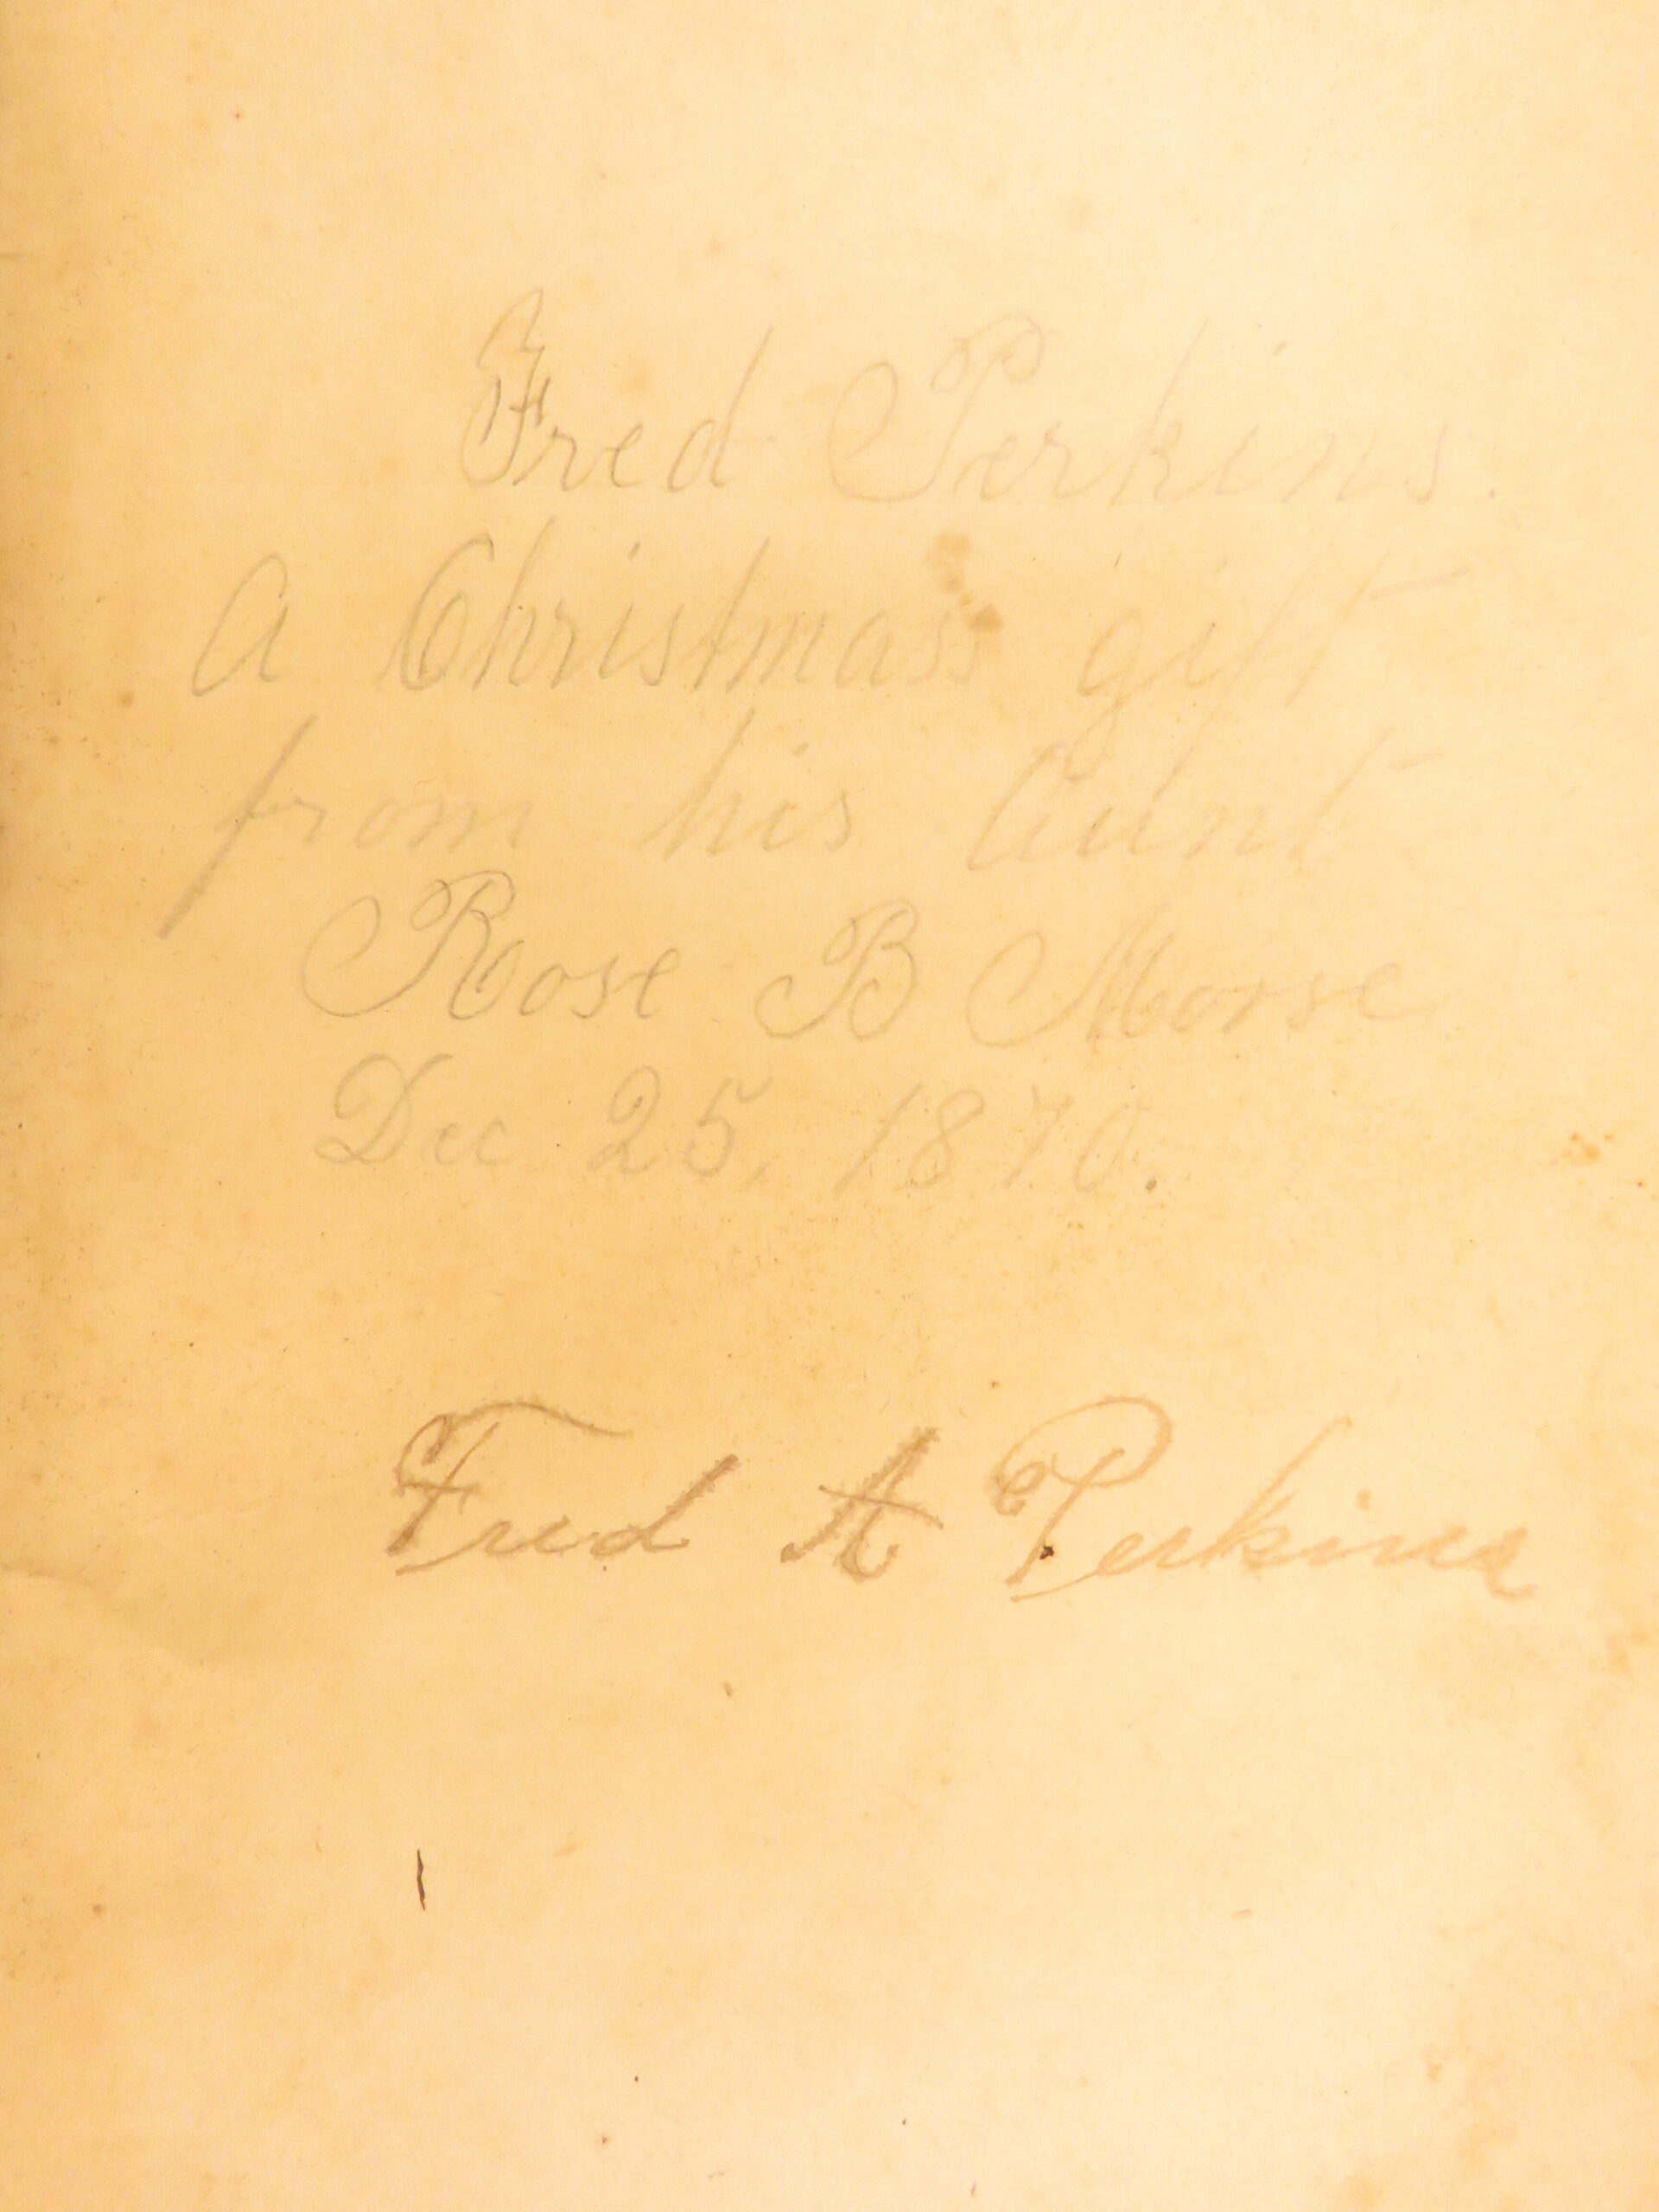 Fred Perkins.
A Christmass gift
from his Aunt
Rose B Morse
Dec 25, 1870.
Fred A Perkins